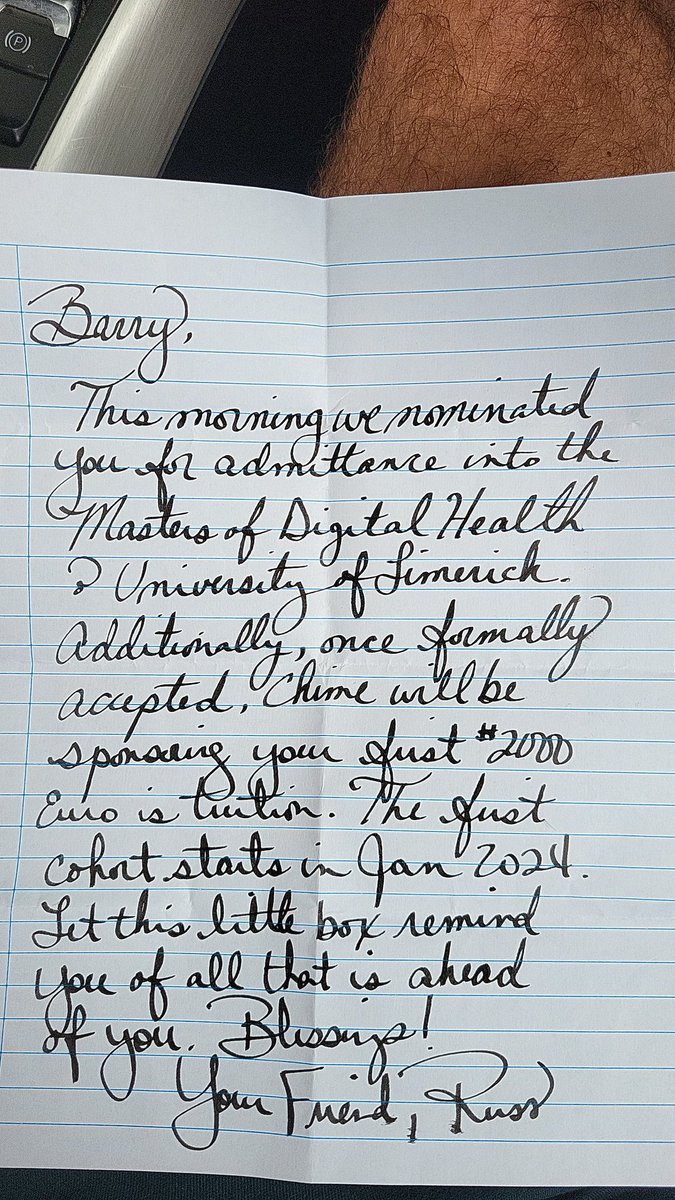 Barry,
This morning we nominated
you for admittance into the
Masters of Digital Health
@ University of Limerick.
Additionally, once formally
accepted, Chime will be
sponsoring your first #2000
Euro is tuition. The first
cohort starts in Jan 2024.
Let this little box remind
you of all that is ahead
of you. Blessings!
Your Friend, Russ